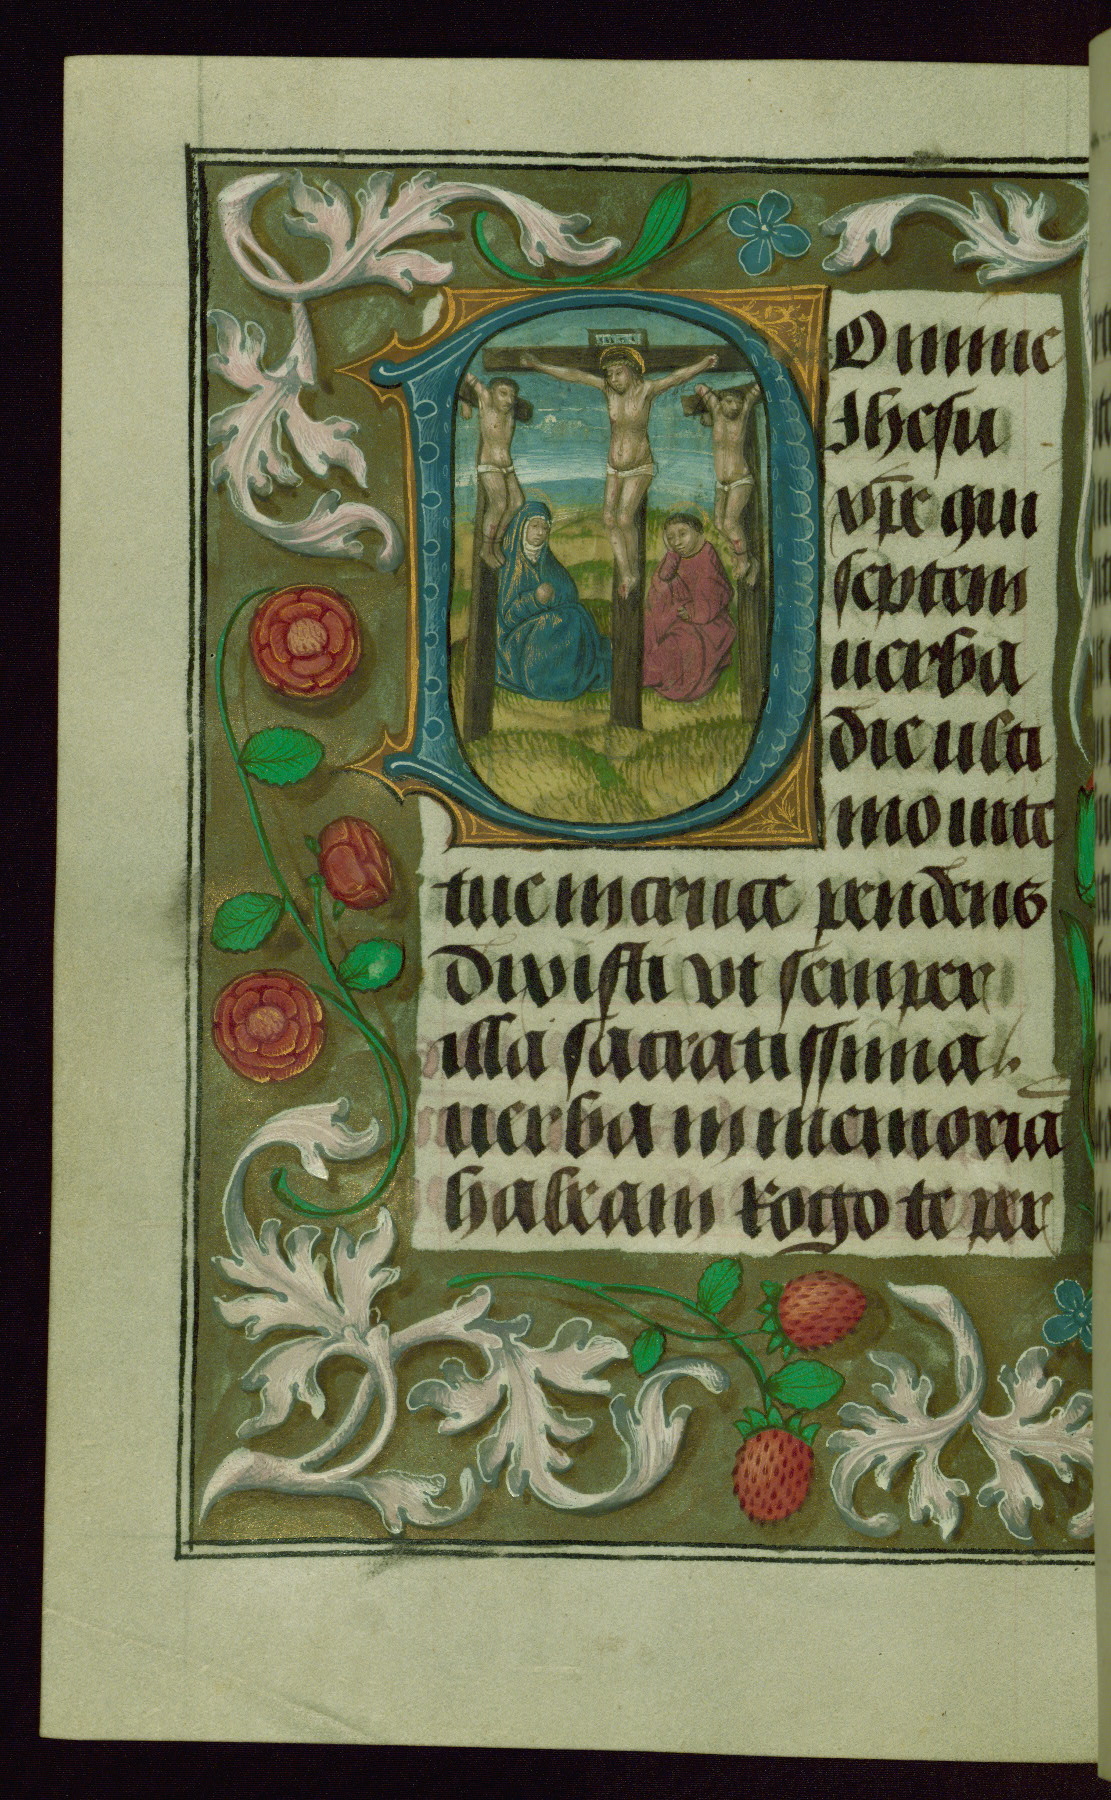 INRI
Domine
Ihesu
xp̄e qui
septem
uerba
die ulti
mo uite
tue in cruce pendens
dixisti vt semper
illa sacratissima
uerba in memoriā
habeam Rogo te per